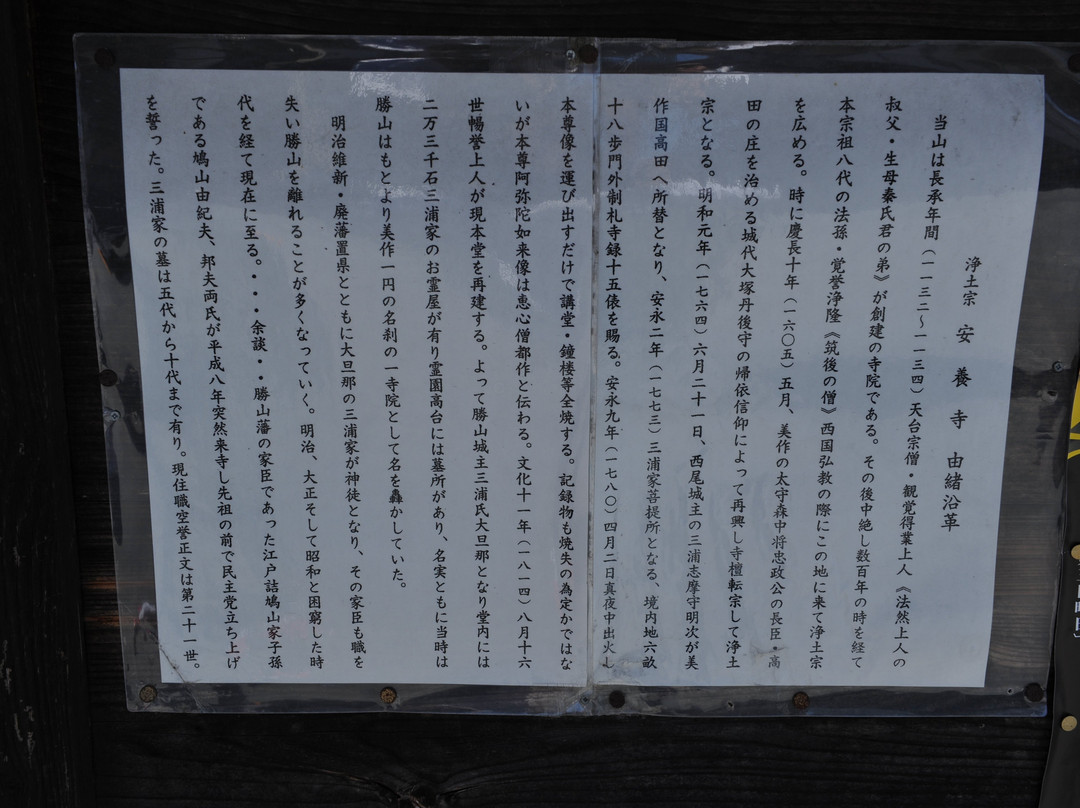 浄土宗 安養寺 由緒沿革
当山は長承年間(一一三二~一一三四)天台宗僧・観覚得業上人《法然上人の
叔父・生母秦氏君の弟》が創建の寺院である。その後中絶し数百年の時を経て
本宗祖八代の法孫・覚誉浄隆《筑後の僧》西国弘教の際にこの地に来て浄土宗
を広める。時に慶長十年(一六〇五)五月、美作の太守森中将忠政公の長臣・高
田の庄を治める城代大塚丹後守の帰依信仰によって再興し寺檀転宗して浄土
宗となる。明和元年(一七六四)六月二十一日、西尾城主の三浦志摩守明次が美
作国高田へ所替となり、安永二年(一七七三)三浦家菩提所となる、境内地六畝
十八歩門外制札寺録十五俵を賜る。安永九年(一七八〇)四月二日真夜中出火し
本尊像を運び出すだけで講堂・鐘楼等全焼する。記録物も焼失の為定かではな
いが本尊阿弥陀如来像は恵心僧都作と伝わる。文化十一年(一八一四)八月十六
世暢誉上人が現本堂を再建する。よって勝山城主三浦氏大旦那となり堂内には
二万三千石三浦家のお霊屋が有り霊園高台には墓所があり、名実ともに当時は
勝山はもとより美作一円の名刹の一寺院として名を轟かしていた。
明治維新・廃藩置県とともに大旦那の三浦家が神徒となり、その家臣も職を
失い勝山を離れることが多くなっていく。明治、大正そして昭和と困窮した時
代を経て現在に至る。・・・余談・・勝山藩の家臣であった江戸詰鳩山家子孫
である鳩山由紀夫、邦夫両氏が平成八年突然来寺し先祖の前で民主党立ち上げ
を誓った。三浦家の墓は五代から十代まで有り。現住職空誉正文は第二十一世。